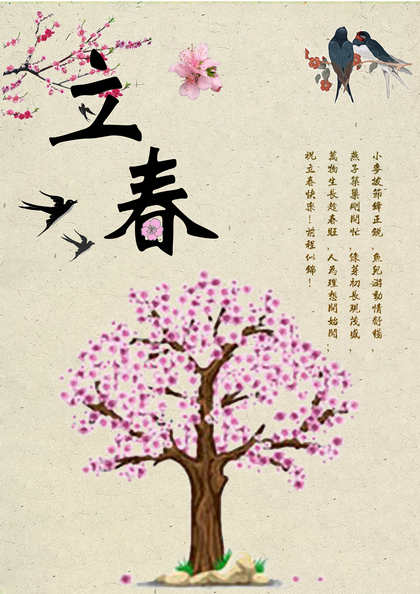 立春
小麥拔節鋒正銳，魚兒游動情舒暢，
燕子築巢剛開忙，綠芽初長現茂盛，
萬物生長趁春旺，人為理想開始闖；
祝立春快樂！前程似錦！